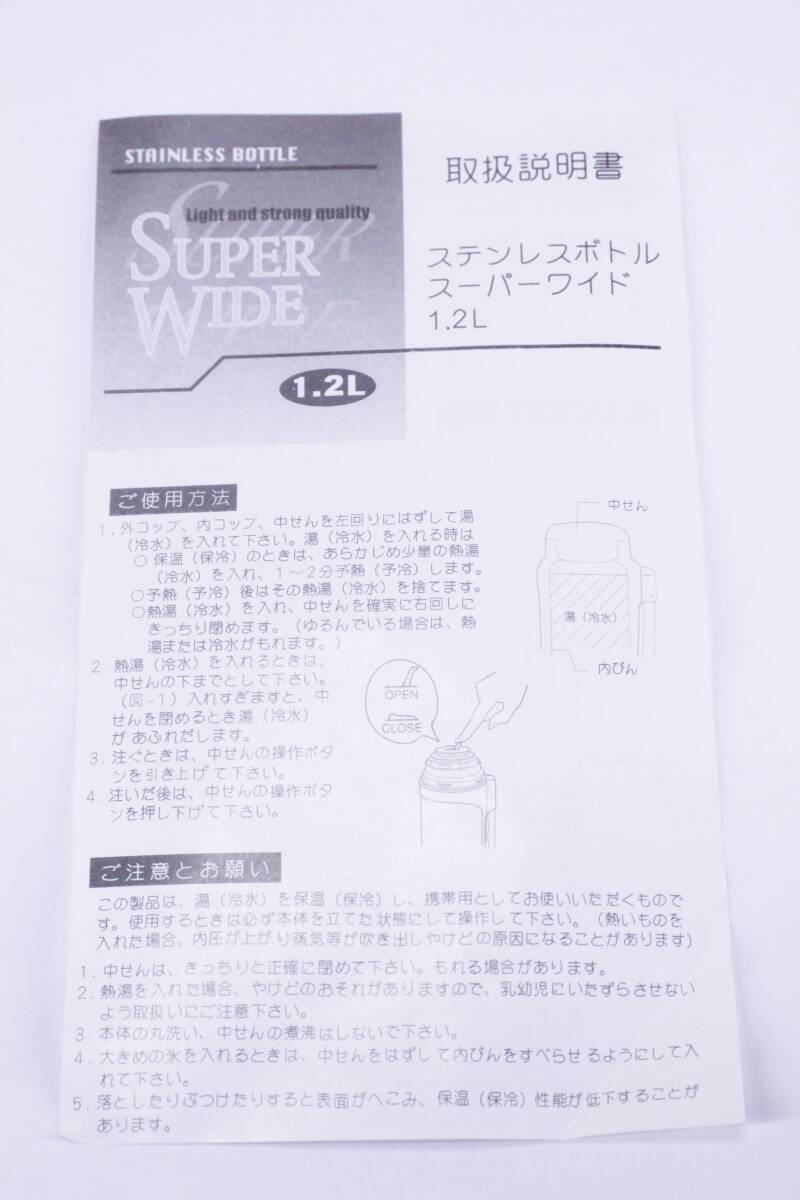 STAINLESS BOTTLE
Light and strong quality
SUPER
WIDE
1.2L
取扱説明書
ステンレスボトル
スーパーワイド
1.2L
ご使用方法
1. 外コップ、内コップ、中せんを左回りにはずして湯
(冷水)を入れて下さい。湯(冷水)を入れる時は
○ 保温(保冷)のときは、あらかじめ少量の熱湯
(冷水)を入れ、1〜2分予熱(予冷)します。
○予熱(予冷)後はその熱湯(冷水)を捨てます。
○熱湯(冷水)を入れ、中せんを確実に右回しに
きっちり閉めます。(ゆるんでいる場合は、熱
湯または冷水がもれます。)
2. 熱湯(冷水)を入れるときは、
中せんの下までとして下さい。
(図-1)入れすぎますと、中
せんを閉めるとき湯(冷水)
があふれだします。
3. 注ぐときは、中せんの操作ボタ
ンを引き上げて下さい。
4. 注いだ後は、中せんの操作ボタ
ンを押し下げて下さい。
中せん
湯(冷水)
内びん
OPEN
CLOSE
ご注意とお願い
この製品は、湯(冷水)を保温(保冷)し、携帯用としてお使いいただくもので
す。使用するときは必ず本体を立てた状態にして操作して下さい。(熱いものを
入れた場合、内圧が上がり蒸気等が吹き出しやけどの原因になることがあります)
1. 中せんは、きっちりと正確に閉めて下さい。もれる場合があります。
2. 熱湯を入れた場合、やけどのおそれがありますので、乳幼児にいたずらさせない
よう取扱いにご注意下さい。
3. 本体の丸洗い、中せんの煮沸はしないで下さい。
4. 大きめの氷を入れるときは、中せんをはずして内びんをすべらせるようにして入
れて下さい。
5. 落としたりぶつけたりすると表面がへこみ、保温(保冷)性能が低下することが
あります。